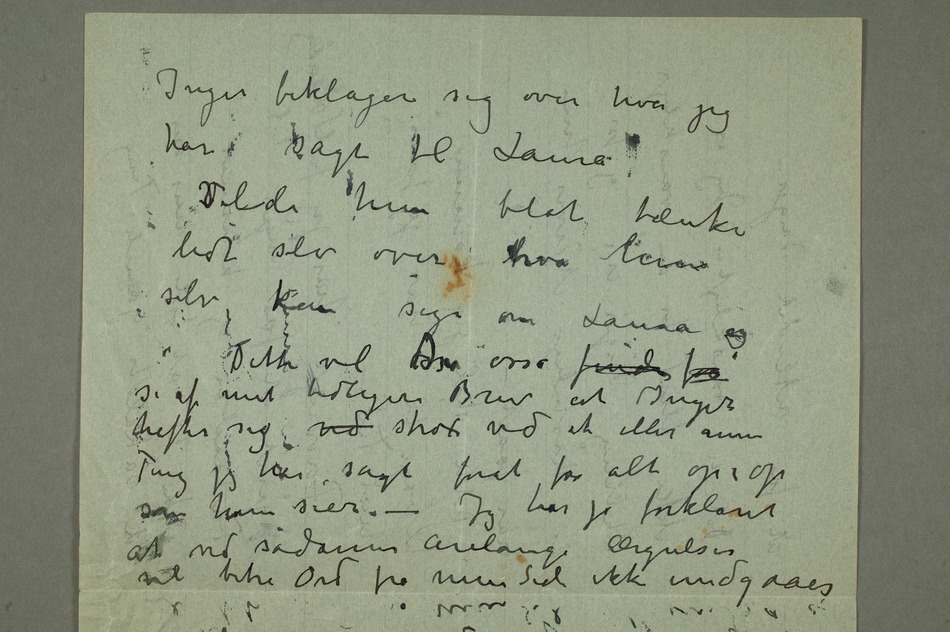 Inger beklager sig over hva jeg
har sagt til Laura
Vilde hun blot tænke
lidt selv over hva hun
selv kan sige om Laura og
Dette vil Du osså finde fra
se af mit tidligere Brev at Inger
hefter sig ved strax ved et eller annen
Ting jeg har sagt forat få alt op i op
som hun sier. — Jeg har jo forklaret
at ved sådanne årelange Ærgrelser
vil bitre Ord fra min Side ikke undgaaes